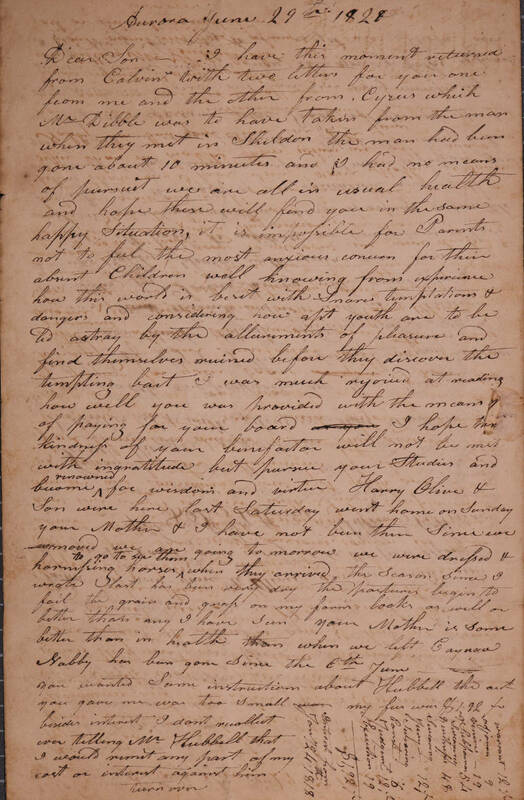 Aurora June 29th 1828
Dear Son — I have this moment returned
from Calvins with two letters for you one
from me and the other from Cyrus which
Mr Dibble was to have taken from the man
when they met in Skeldon the man had been
gone about 10 minutes and I had no means
of pursuit we are all in usual health
and hope these will find you in the same
happy Situation, it is impossible for Parents
not to feel the most anxious concern for their
absent Children well knowing from experience
how this world is beset with Snares temptations &
dangers and considering how apt youth are to be
led astray by the allurements of pleasure and
find themselves ruined before they discover the
tempting bait I was much rejoiced at reading
how well you was provided with the means
of paying for your board I hope the
kindness of your benefactor will not be met
with ingratitude but pursue your Studies and
become renowned for wisdom and virtue Harry Olive &
Son were here last Saturday went home on Sunday
your Mother & I have not been there Since we
moved we going to morrow we were dressed &
harnessing horses to go to see them when they arrived the Season Since I
wrote last has been very dry the pastures begin to
fail the grain and grass on my farm looks as well or
better than any I have seen your Mother is some
better than in health than when we left Cayuga
Nabby has been gone Since the 6th June
you wanted Some instructions about Hubbell the act
you gave me was too Small my fee was $1,92
besides interest I dont recollect
ever telling Mr Hubbell that
I would remit any part of my
cost or interest against him
turn over